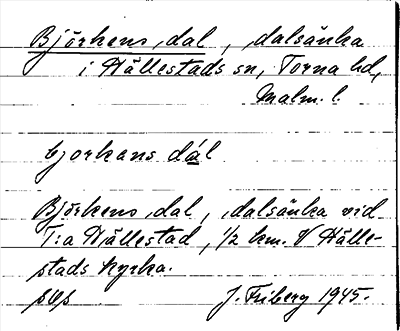 Björkens dal, dalsänka
i Hällestads sn, Torna hd,
Malm. l.
bjorkans dal
Björkens dal, dalsänka vid
T:a Hällestad, ½ km. V Hälle-
stads kyrka.
J. Friberg 1945.